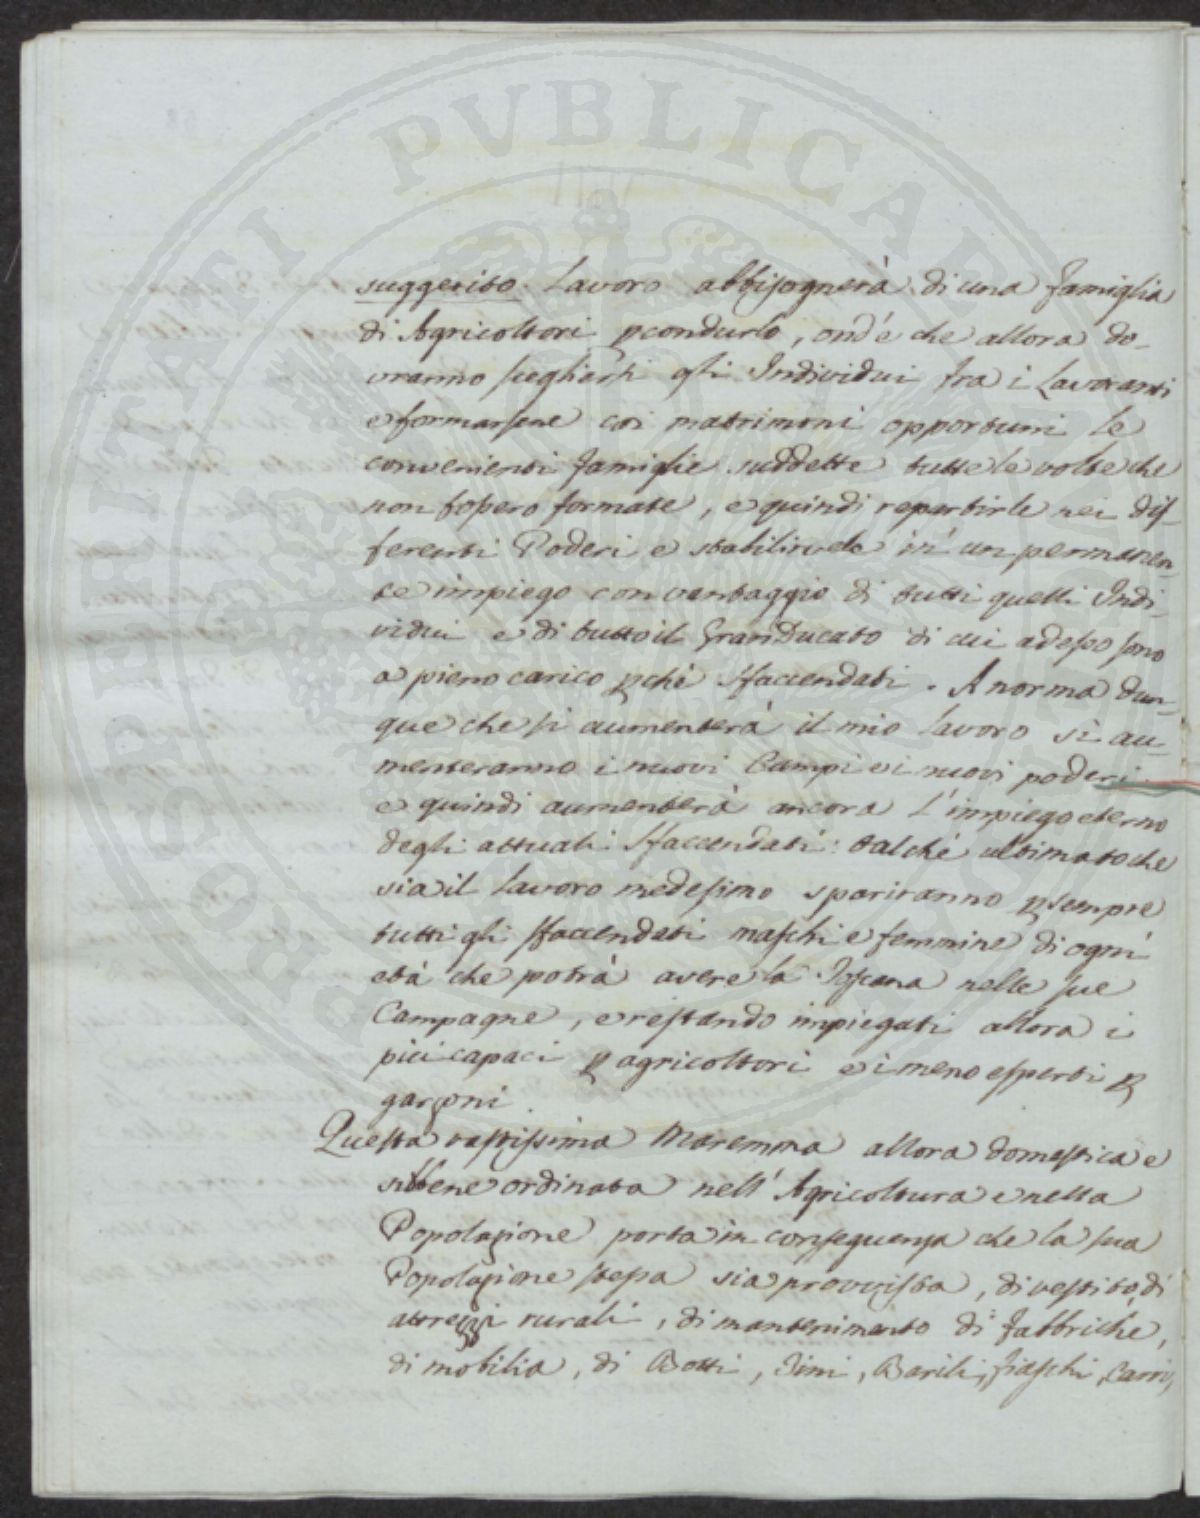 PROSPERITATI PVBLICAE AVGENDAE
suggerito Lavoro abbisognerà di una famiglia
di Agricoltori p condurlo, ond'è che allora do-
vranno scegliersi gli Individui fra i Lavoranti
e formarsene coi matrimoni opportuni le
convenienti famiglie suddette tutte le volte che
non fossero formate, e quindi repartirle nei dif-
ferenti Poderi e stabilirvele in un permanen-
te impiego con vantaggio di tutti quelli Indi-
vidui e di tutto il GranDucato di cui adesso sono
a pieno carico pchè sfaccendati. A norma dun-
que che si aumenterà il mio lavoro si au-
menteranno i nuovi Campi ei nuovi poderi
e quindi aumenterà ancora l'impiego eterno
degli attuali sfaccendati: talchè ultimato che
sia il lavoro medesimo spariranno p sempre
tutti gli sfaccendati maschi e femmine di ogni
età che potrà avere la Toscana nelle sue
Campagne, e restando impiegati allora i
più capaci p agricoltori ei meno esperti p
garzoni
Questa vastissima Maremma allora domestica e
sibbene ordinata nell'Agricoltura e nella
Popolazione porta in conseguenza che la sua
Popolazione stessa sia provvista, di vestito, di
attrezzi rurali, di mantenimento di fabbriche,
di mobilia, di Botti, Tini, Barili, fiaschi, Carri,